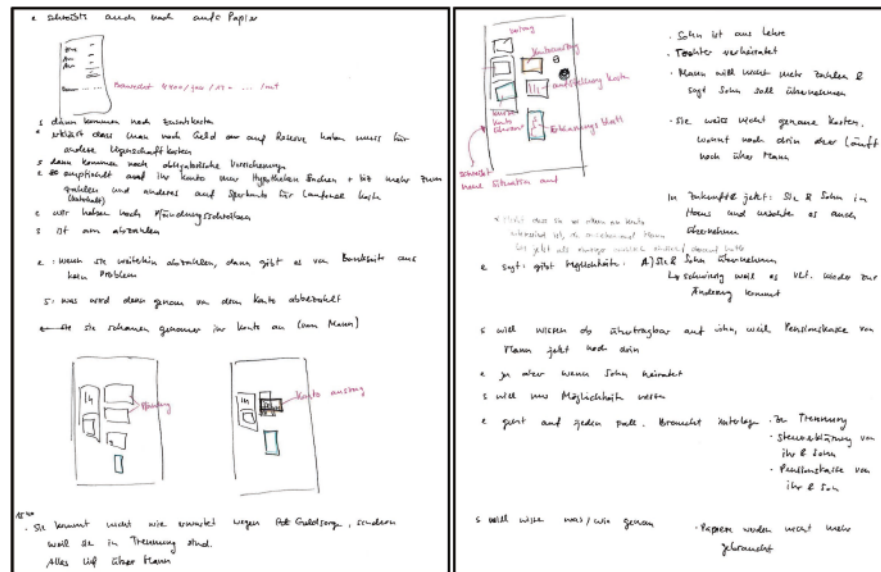 e schreibt auch noch aufs Papier
s dann kommen noch Zusatzkosten
e erklärt dass man noch Geld auf Reserve haben muss für
andere Eigenschaftkosten
s dann kommen noch obligatorische Versicherung
e empfiehlt auf ihr Konto nur Hypotheken + bitz mehr zum
zahlen und anderes auf Sparkonto für laufende
e wir haben noch Kündigungsschreiben
s ist am abzahlen
e : wenn sie weiterhin abzahlen, dann gibt es von Bankseite aus
kein Problem
s : was wird denn genau von dem Konto abbezahlt
sie schauen genauer ihr Konto an (vom Mann)
Konto auszug
· Sie kommt nicht wie erwartet wegen Geldsorge, sondern
weil sie in Trennung sind.
Alles lief über Mann
Vertrag
Kontoauszug
Aufstellung Kosten
Erklärungs blatt
schreibt
neue Situation auf
· Sohn ist aus Lehre
· Tochter verheiratet
· Mann will nicht mehr zahlen &
sagt Sohn soll übernehmen
· Sie weiss nicht genaue Kosten,
wohnt noch drin aber läuft
noch über Mann
In Zukunft & jetzt : Sie & Sohn im
Haus und möchte es auch
übernehmen
e sagt : gibt Möglichkeite : A) Sie & Sohn übernehmen
↳ schwierig weil es vlt. wieder zur
Änderung kommt
s will wissen ob übertragbar auf ihn, weil Pensionskasse von
Mann jetzt noch drin
e ja aber wenn Sohn heiratet
s will nur Möglichkeite wissen
e geht auf jeden Fall. Braucht Unterlag · Zu Trennung
· Steuererklärung von
ihr & Sohn
· Pensionskasse von
ihr & Sohn
s will wisse was/wie genau
· Papiere werden nicht mehr
gebraucht